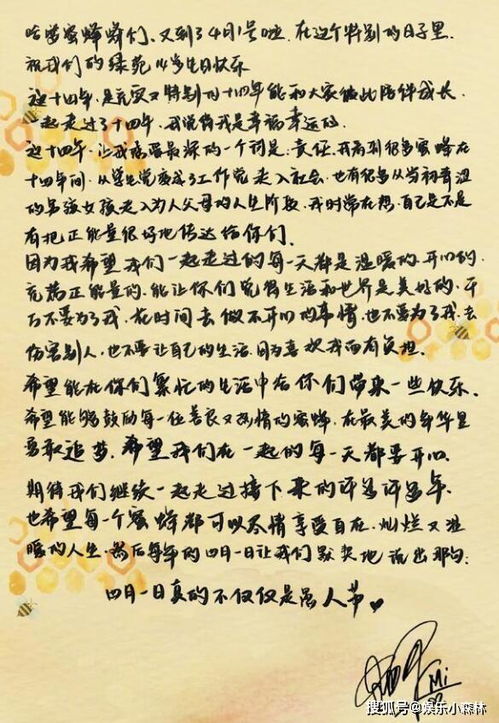 哈喽蜜蜂蜂们、又到了4月1号啦.在这个特别的日子里.
祝我们的绿苑 生日快乐
这十四年.是充实又特别的十四年能和大家彼此陪伴成长.
一起走过了十四年.我觉得我是幸福幸运的.
这十四年.让我感受最深的一个词是:责任.我看到很多蜜蜂在
十四年间.从学生党变成了工作党走入社会.也有很多从当初青涩
的男孩女孩走入为人父母的人生阶段.我时常在想.自己是不是
有把正能量很好地传达给你们.
因为我希望我们一起走过的每一天都是温暖的.开心的.
充满正能量的.能让你们觉得生活和世界是美好的.千
万不要为了我.花时间去做不开心的事情.也不要为了我.去
伤害别人.也不要让自己的生活.因为喜欢我而有负担.
希望能在你们繁忙的生活中给你们带来一些快乐.
希望能够鼓励每一位善良又热情的蜜蜂.在最美的年华里
勇敢追梦.希望我们在一起的每一天都要开心.
期待我们继续一起走过接下来的许多许多年.
也希望每一个蜜蜂都可以尽情享受自在.灿烂又温
暖的人生.然后每年的四月一日让我们默契地说出那句:
四月一日真的不仅仅是愚人节
Mi
搜狐号@娱乐小森林